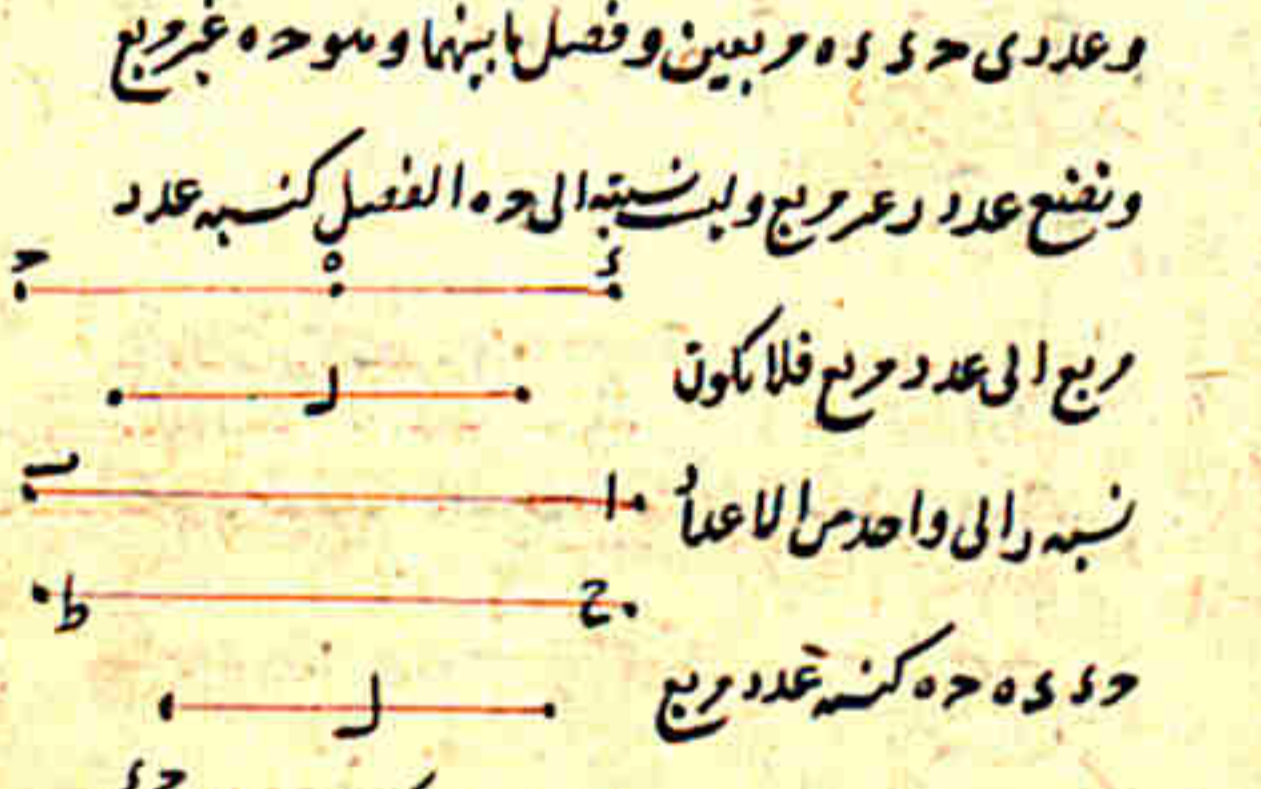 وعددى حد ده مربعين وفضل ما بينهما وهو حه غير مربع
ونضع عدد ر غير مربع وليست نسبته الى حه الفضل كنسبة عدد
ح ه د
مربع الى عدد مربع فلا تكون
ر
نسبة ر الى واحد من الاعداد
ب ا
ط ح
حد ده حه كنسبة عدد مربع
ل
حد